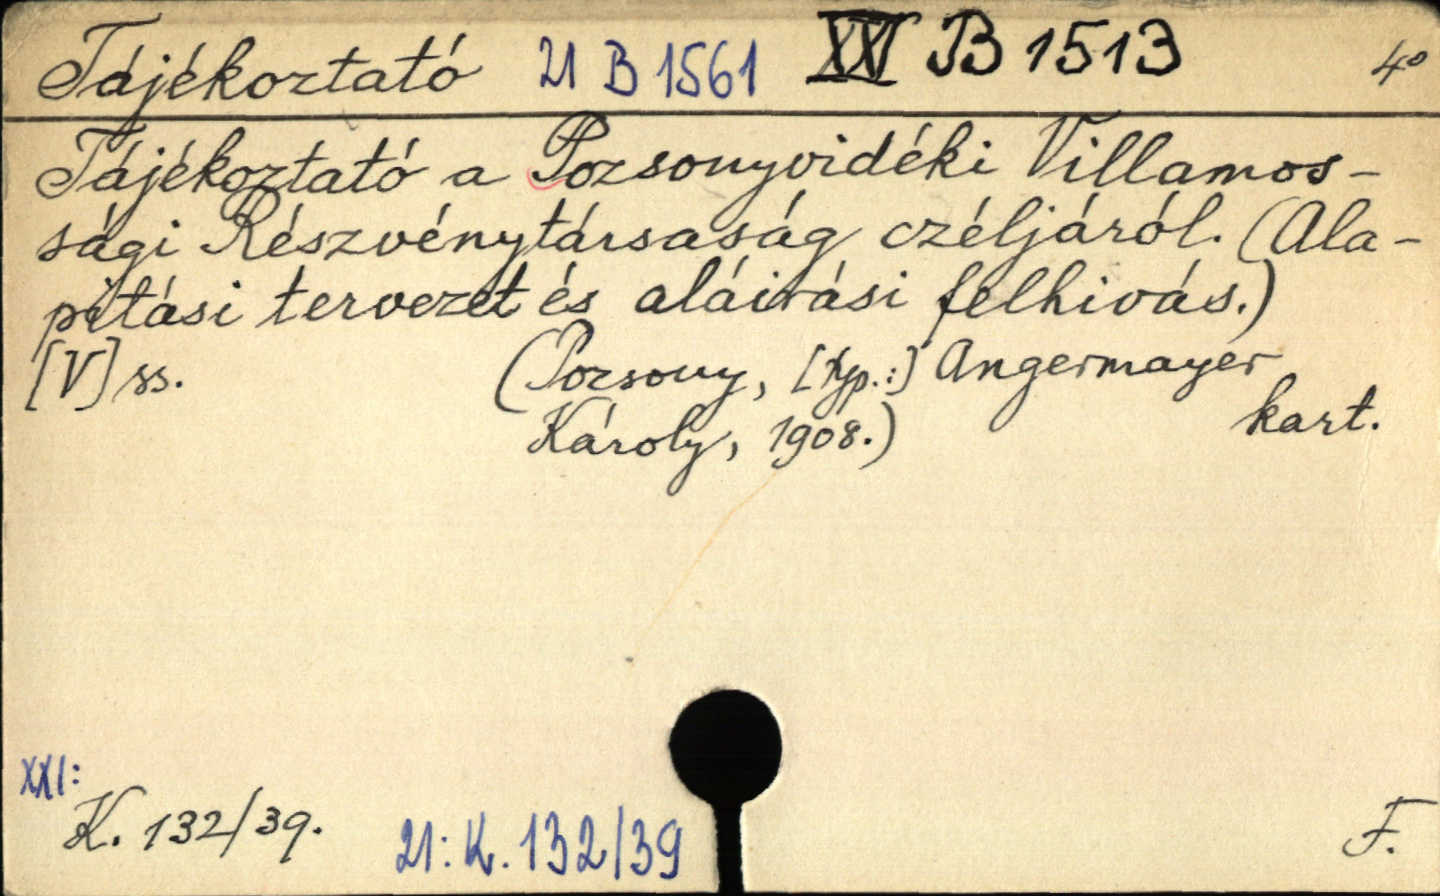 Tájékoztató 21 B 1561 XXI B 1513 4°
Tájékoztató a Pozsonyvidéki Villamos-
sági Részvénytársaság czéljáról. (Ala-
pitási tervezet és aláirási felhivás.)
[V] ss. (Pozsony, [typ.:] Angermayer
Károly, 1908.) kart.
XXI:
K. 132/39. 21: K. 132/39 F.